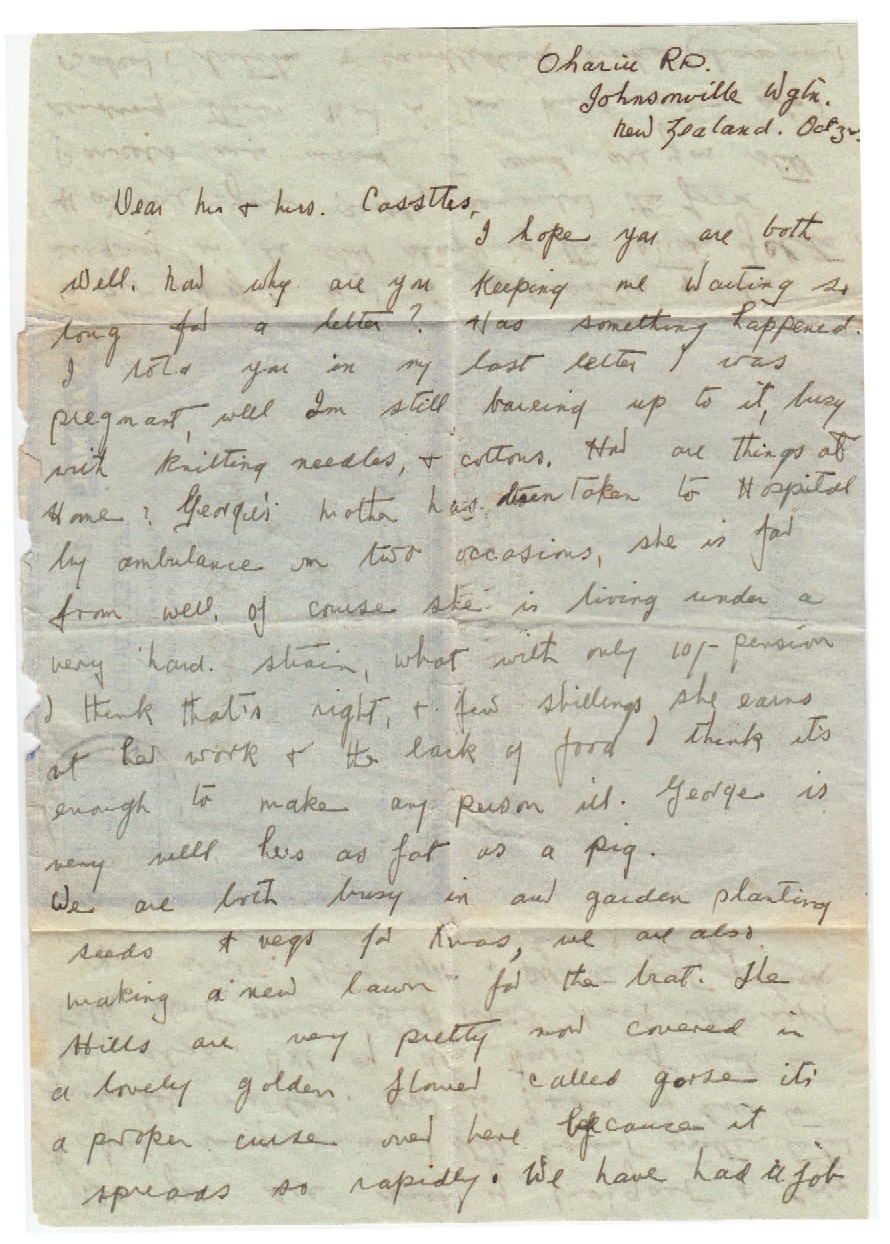 Ohariu RD.
Johnsonville Wgtn.
New Zealand. Oct 3rd
Dear Mr & Mrs. Cassttes,
I hope you are both
well. Now why are you keeping me waiting so
long for a letter? Has something happened.
I told you in my last letter I was
pregnant, well Im still bareing up to it, busy
with knitting needles, & cottons. How are things at
Home? Georgie's mother has been taken to Hospital
by ambulance on two occasions, she is far
from well, of course she is living under a
very hard. strain, what with only 10/- pension
I think that's right, & few shillings she earns
at her work & the lack of food I think it's
enough to make any person ill. George is
very well he's as fat as a pig.
We are both busy in our garden planting
seeds & vegs for Xmas, we are also
making a new lawn for the brat. The
Hills are very pretty now covered in
a lovely golden flower called gorse it's
a proper curse over here because it
spreads so rapidly. We have had a job